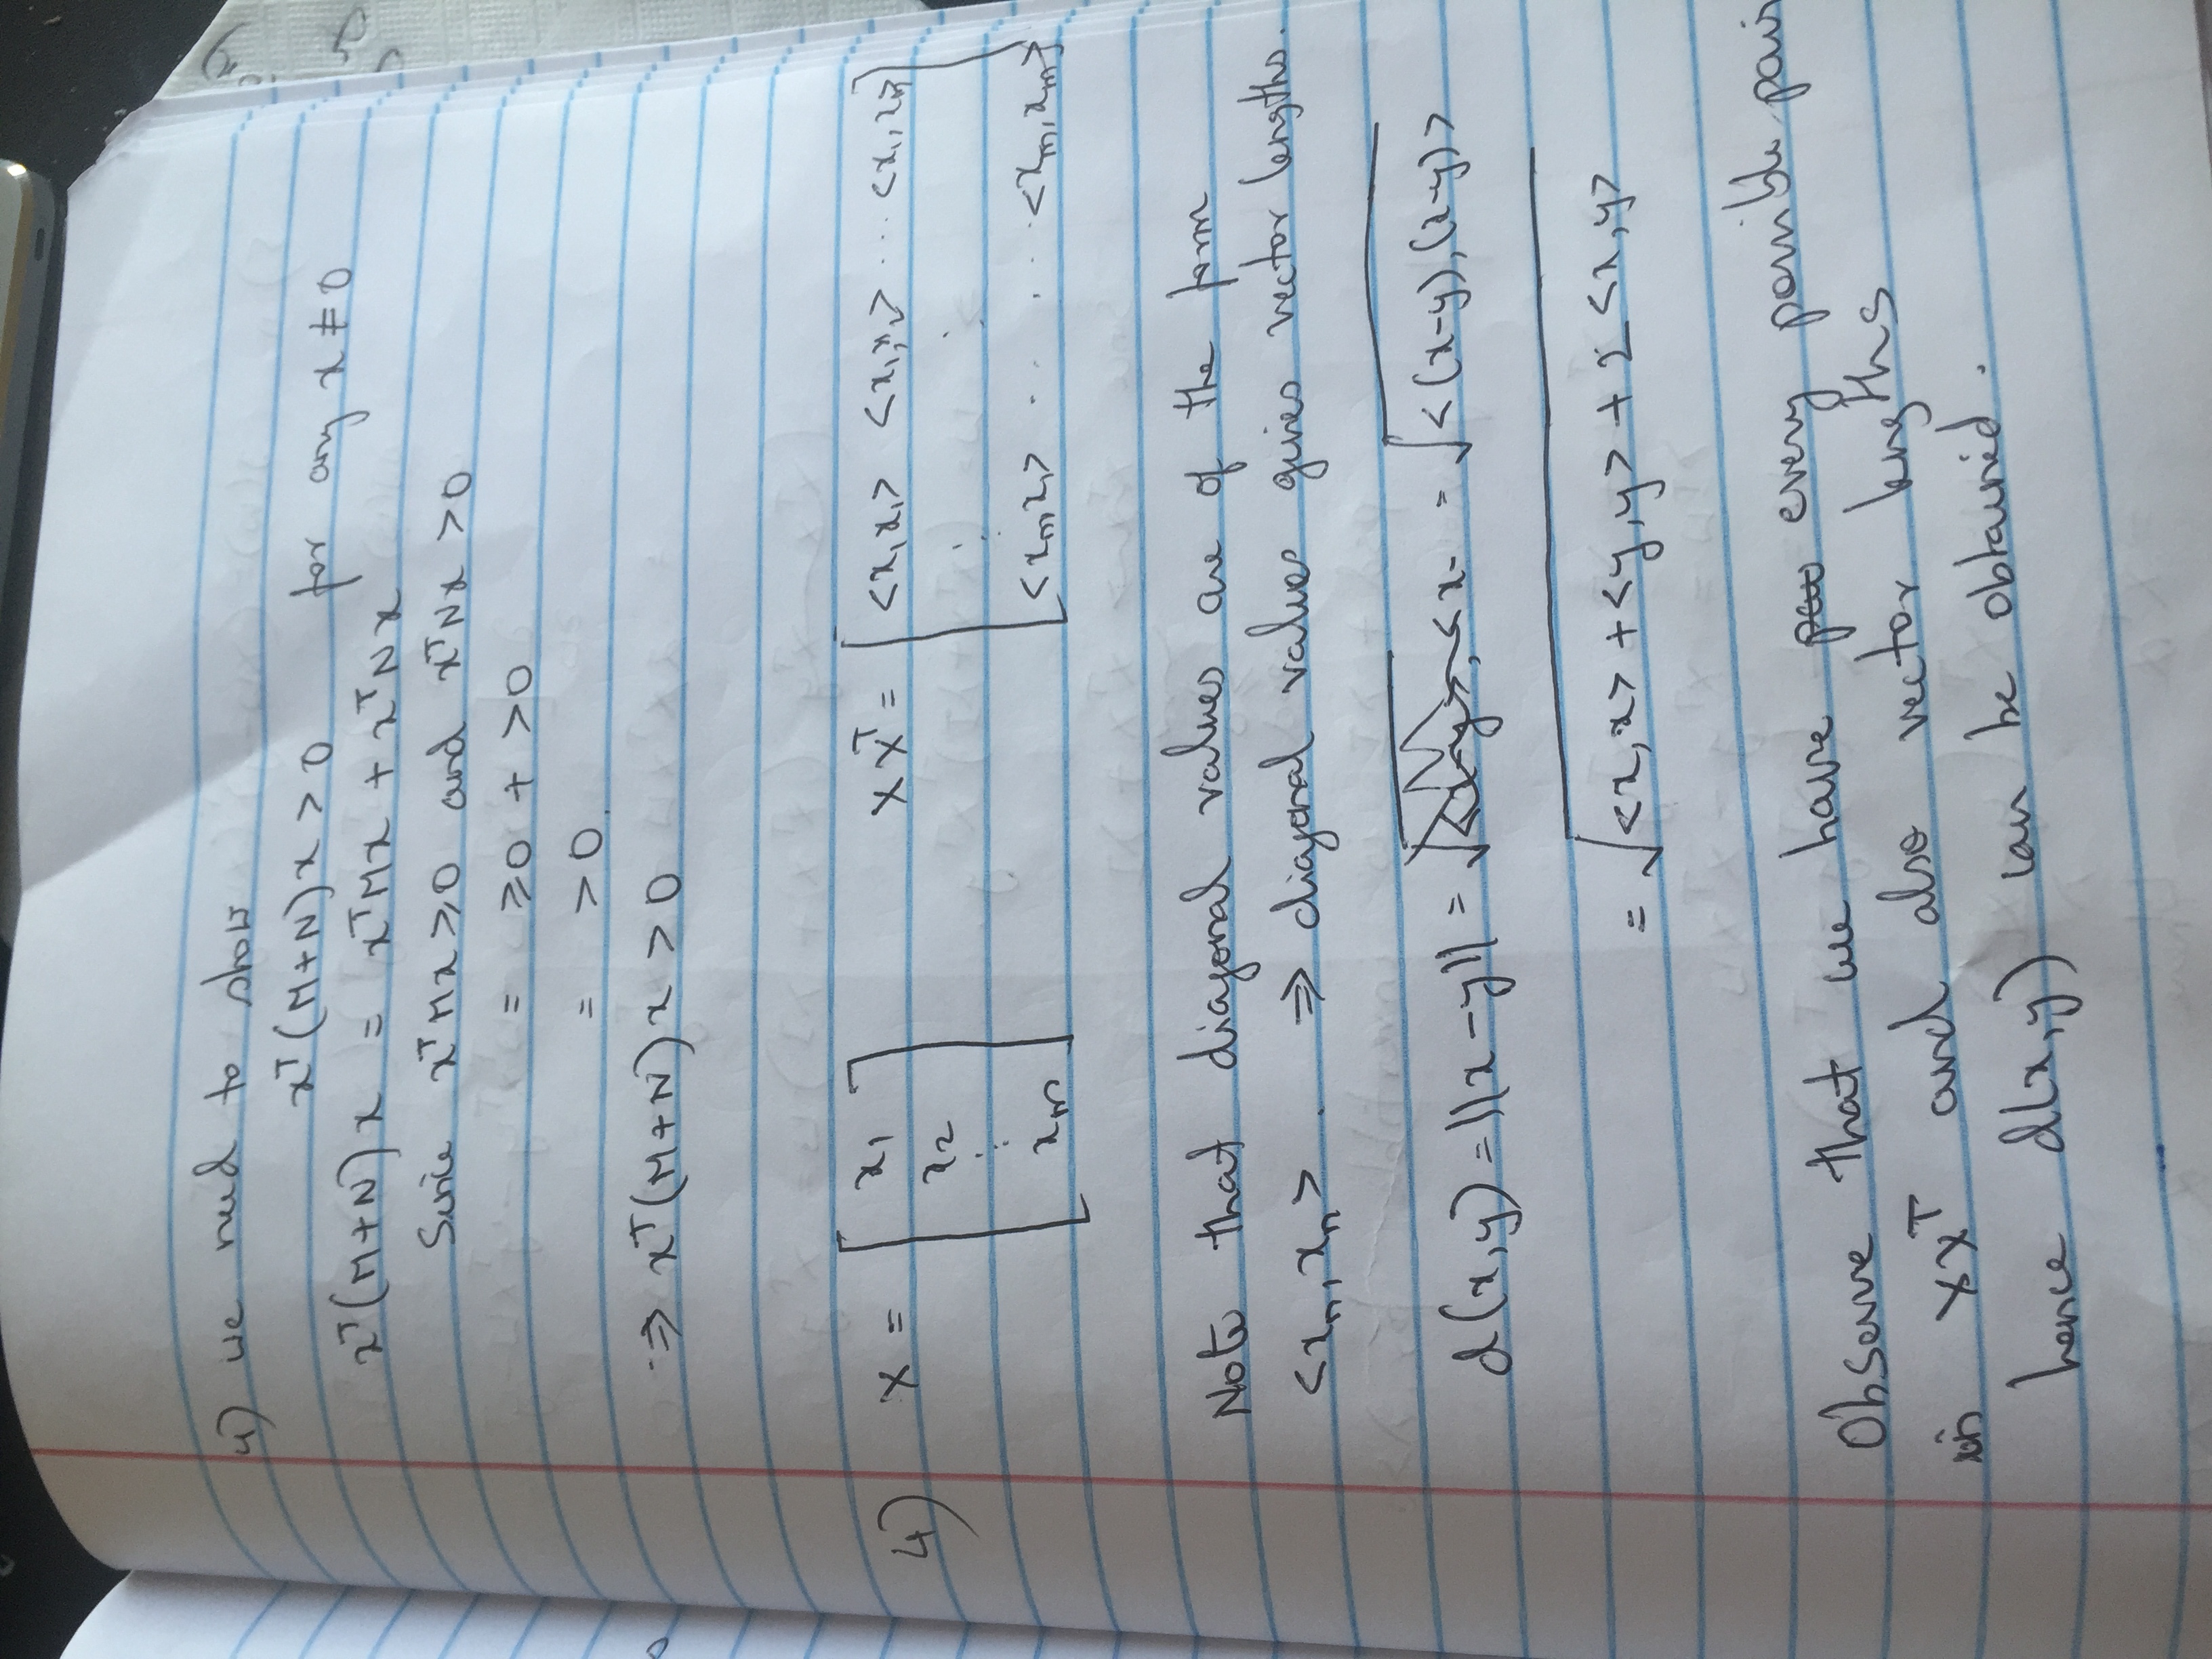 4) we need to show
xᵀ(M+N)x > 0 for any x ≠ 0
xᵀ(M+N)x = xᵀMx + xᵀNx
Since xᵀMx ≥ 0 and xᵀNx > 0
= ≥0 + >0
= >0.
⇒ xᵀ(M+N)x > 0
4) X = [x₁ x₂ ⋮ xₘ] XXᵀ = [<x₁x₁> <x₁,x₂> ... <x₁,xₘ> ⋮ <xₘx₁> ... <xₘ,xₘ>]
Note that diagonal values are of the form
<xₙ, xₙ> . ⇒ diagonal values gives vector lengths.
d(x,y) = ||x-y|| = <x- = √<(x-y),(x-y)>
= √<x,x> + <y,y> + 2<x,y>
Observe that we have every possible pair
in XXᵀ and also vector lengths
hence d(x,y) can be obtained.